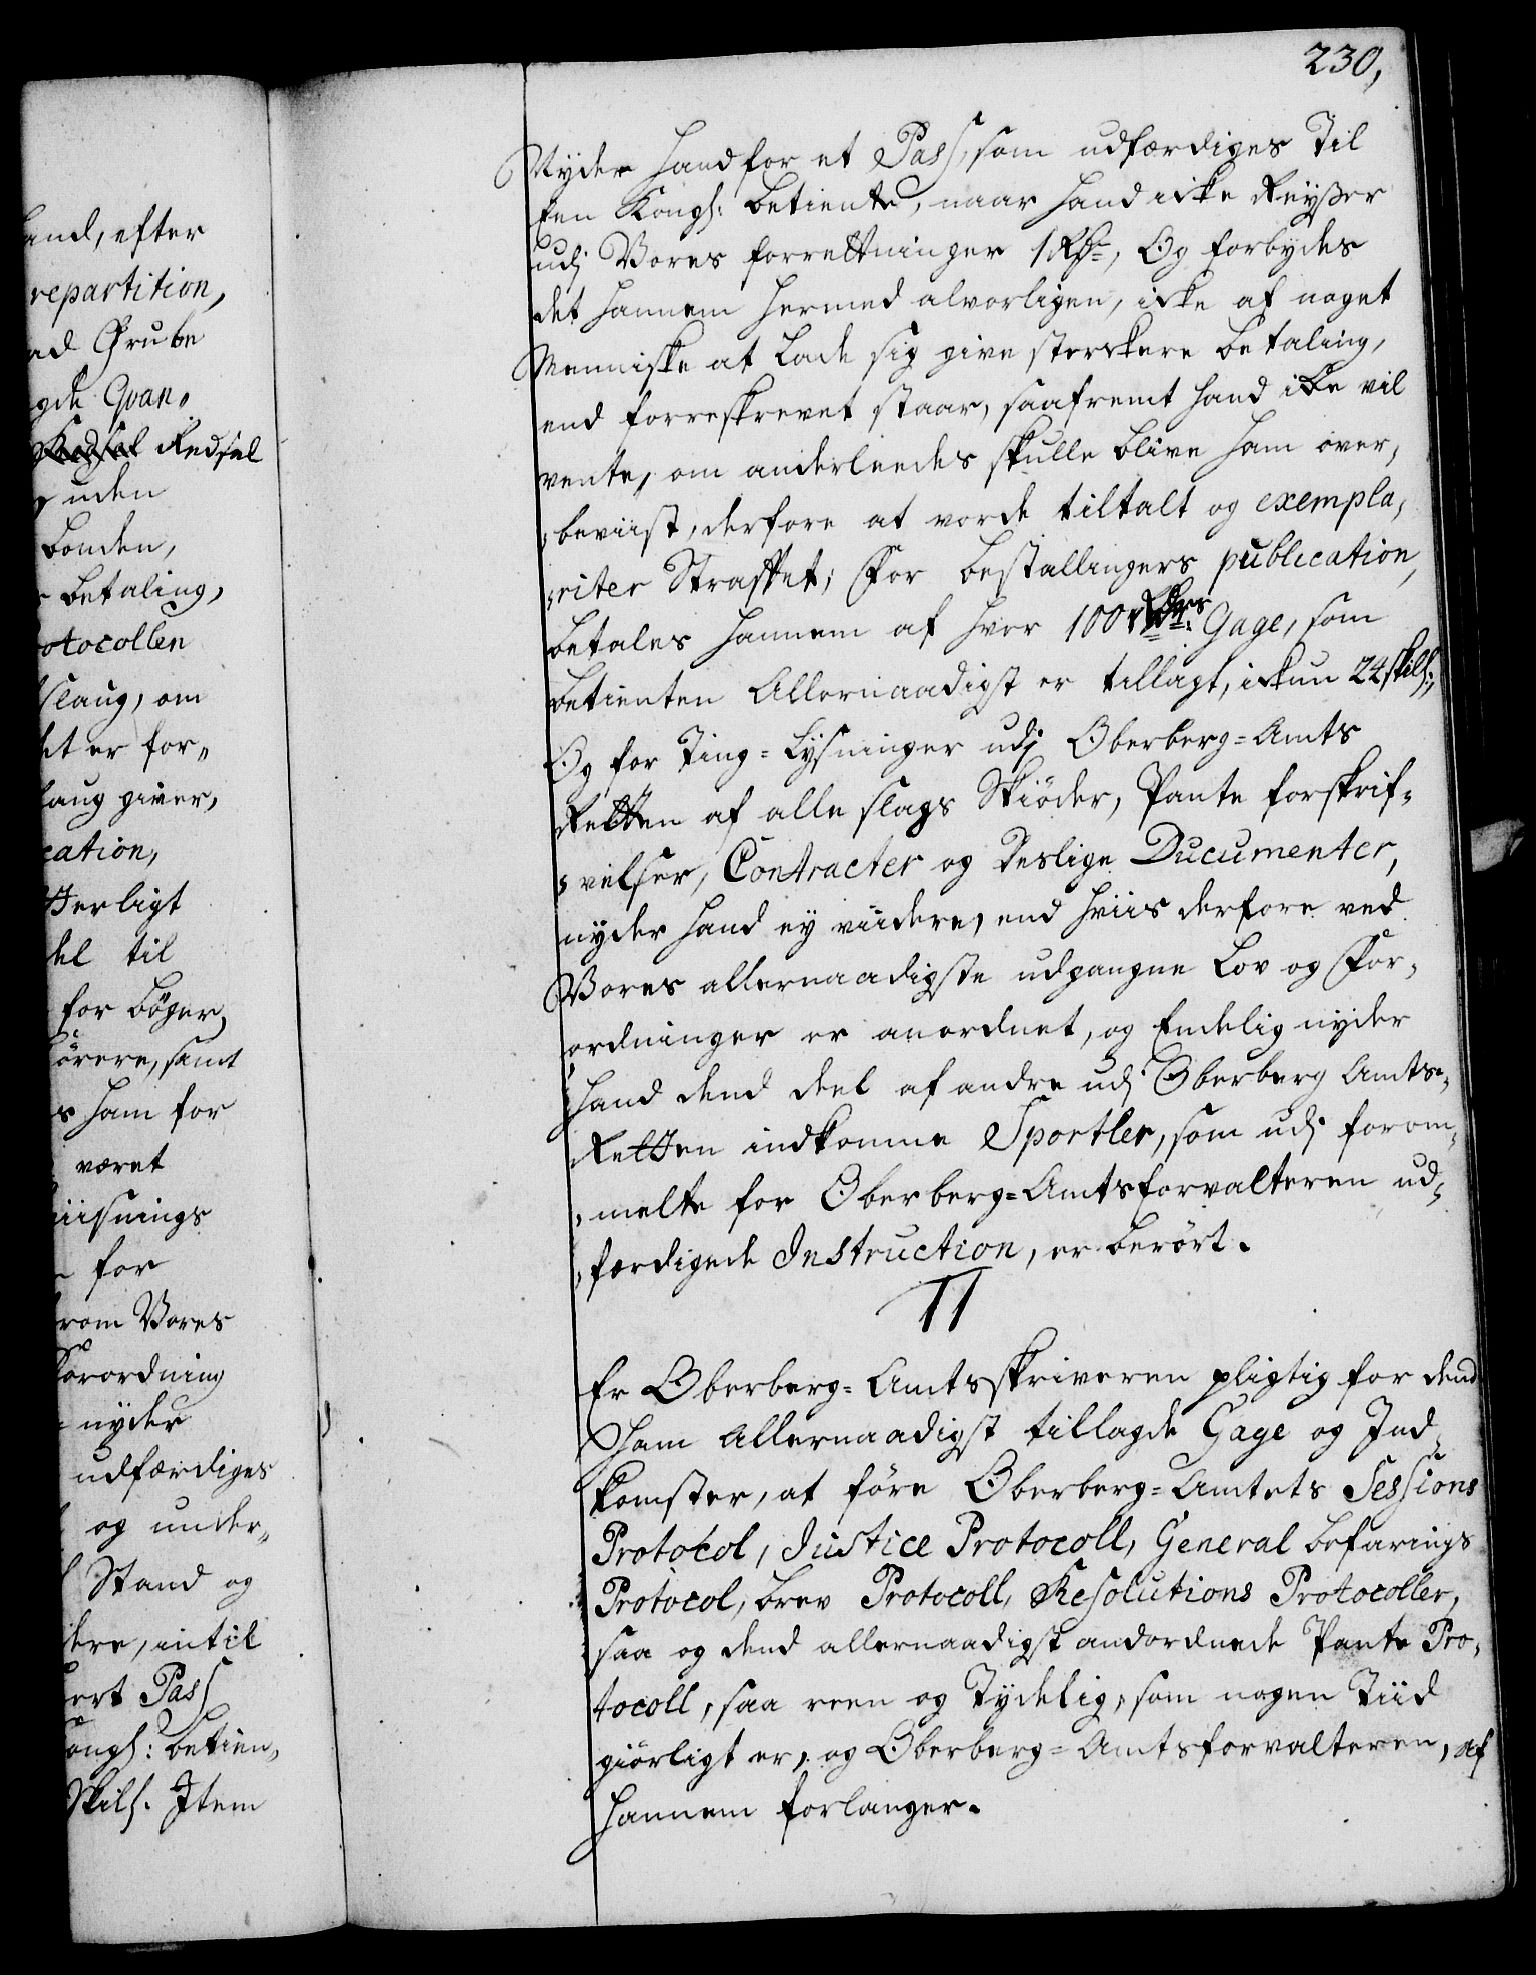 230,
Nyder hand for et Pass, som udfærdiges Til
Een Kongl: betiente, naar hand icke Reyßer
udj Vores forrettninger 1 Rdr, Og forbydes
det hannem hermed alvorligen, icke af noget
Menniske at Lade sig give sterckere betaling,
end forreskrevet staar, saafremt hand icke vil
vente, om anderleedes skulle blive ham over,
,beviist, derfore at vorde tiltalt og exempla,
,riter Straffet; For bestallingers publication,
betales hannem af hver 100 Rdrs Gage, som
betienten Allernaadigst er tillagt, ickun 24 skilh:,
Og for Ting-Lysninger udj Oberberg-Amts
Retten af alle slags Skiöder, Pante forskrif„
„velser, Contracter og deslige Ducumenter,
nyder hand ey viidere, end hviis derfore ved
Vores allernaadigste udgangne Lov og For„
ordninger er anordnet, og Endelig nyder
hand dend deel af andre udj Oberberg Amts„
Retten indkomne Sportler, som udj forom„
„melte for Oberberg-Amtsforvalteren ud„
„færdigede Instruction, er berørt.
11
Er Oberberg-Amtsskriveren pligtig for dend
Ham Allernaadigst tillagde Gage og Ind„
komster, at føre Oberberg-Amtets Sessions
Protocol, Justice Protocoll, General befarings
Protocol, brev Protocoll, Resolutions Protocoller,
saa og dend allernaadigst andordnede Pante Pro„
tocoll, saa reen og Tydelig, som nogen Tiid
giørligt er, og Oberberg-Amtsforvalteren, af
hannem forlanger.
and, efter
repartition,
ad Grube
gde Qvan„
Kedsel Redsel
uden
bonden,
betaling,
otocollen
slaug, om
et er for„
laug giver,
cation,
tterligt
del til
for bøger,
örere, samt
s ham for
været
iisnings
for
rom Vores
forordning
nyder
udfærdiges
og under„
Stand og
dere, intil
ert Pass
ongl: betien„
Skilh. Item